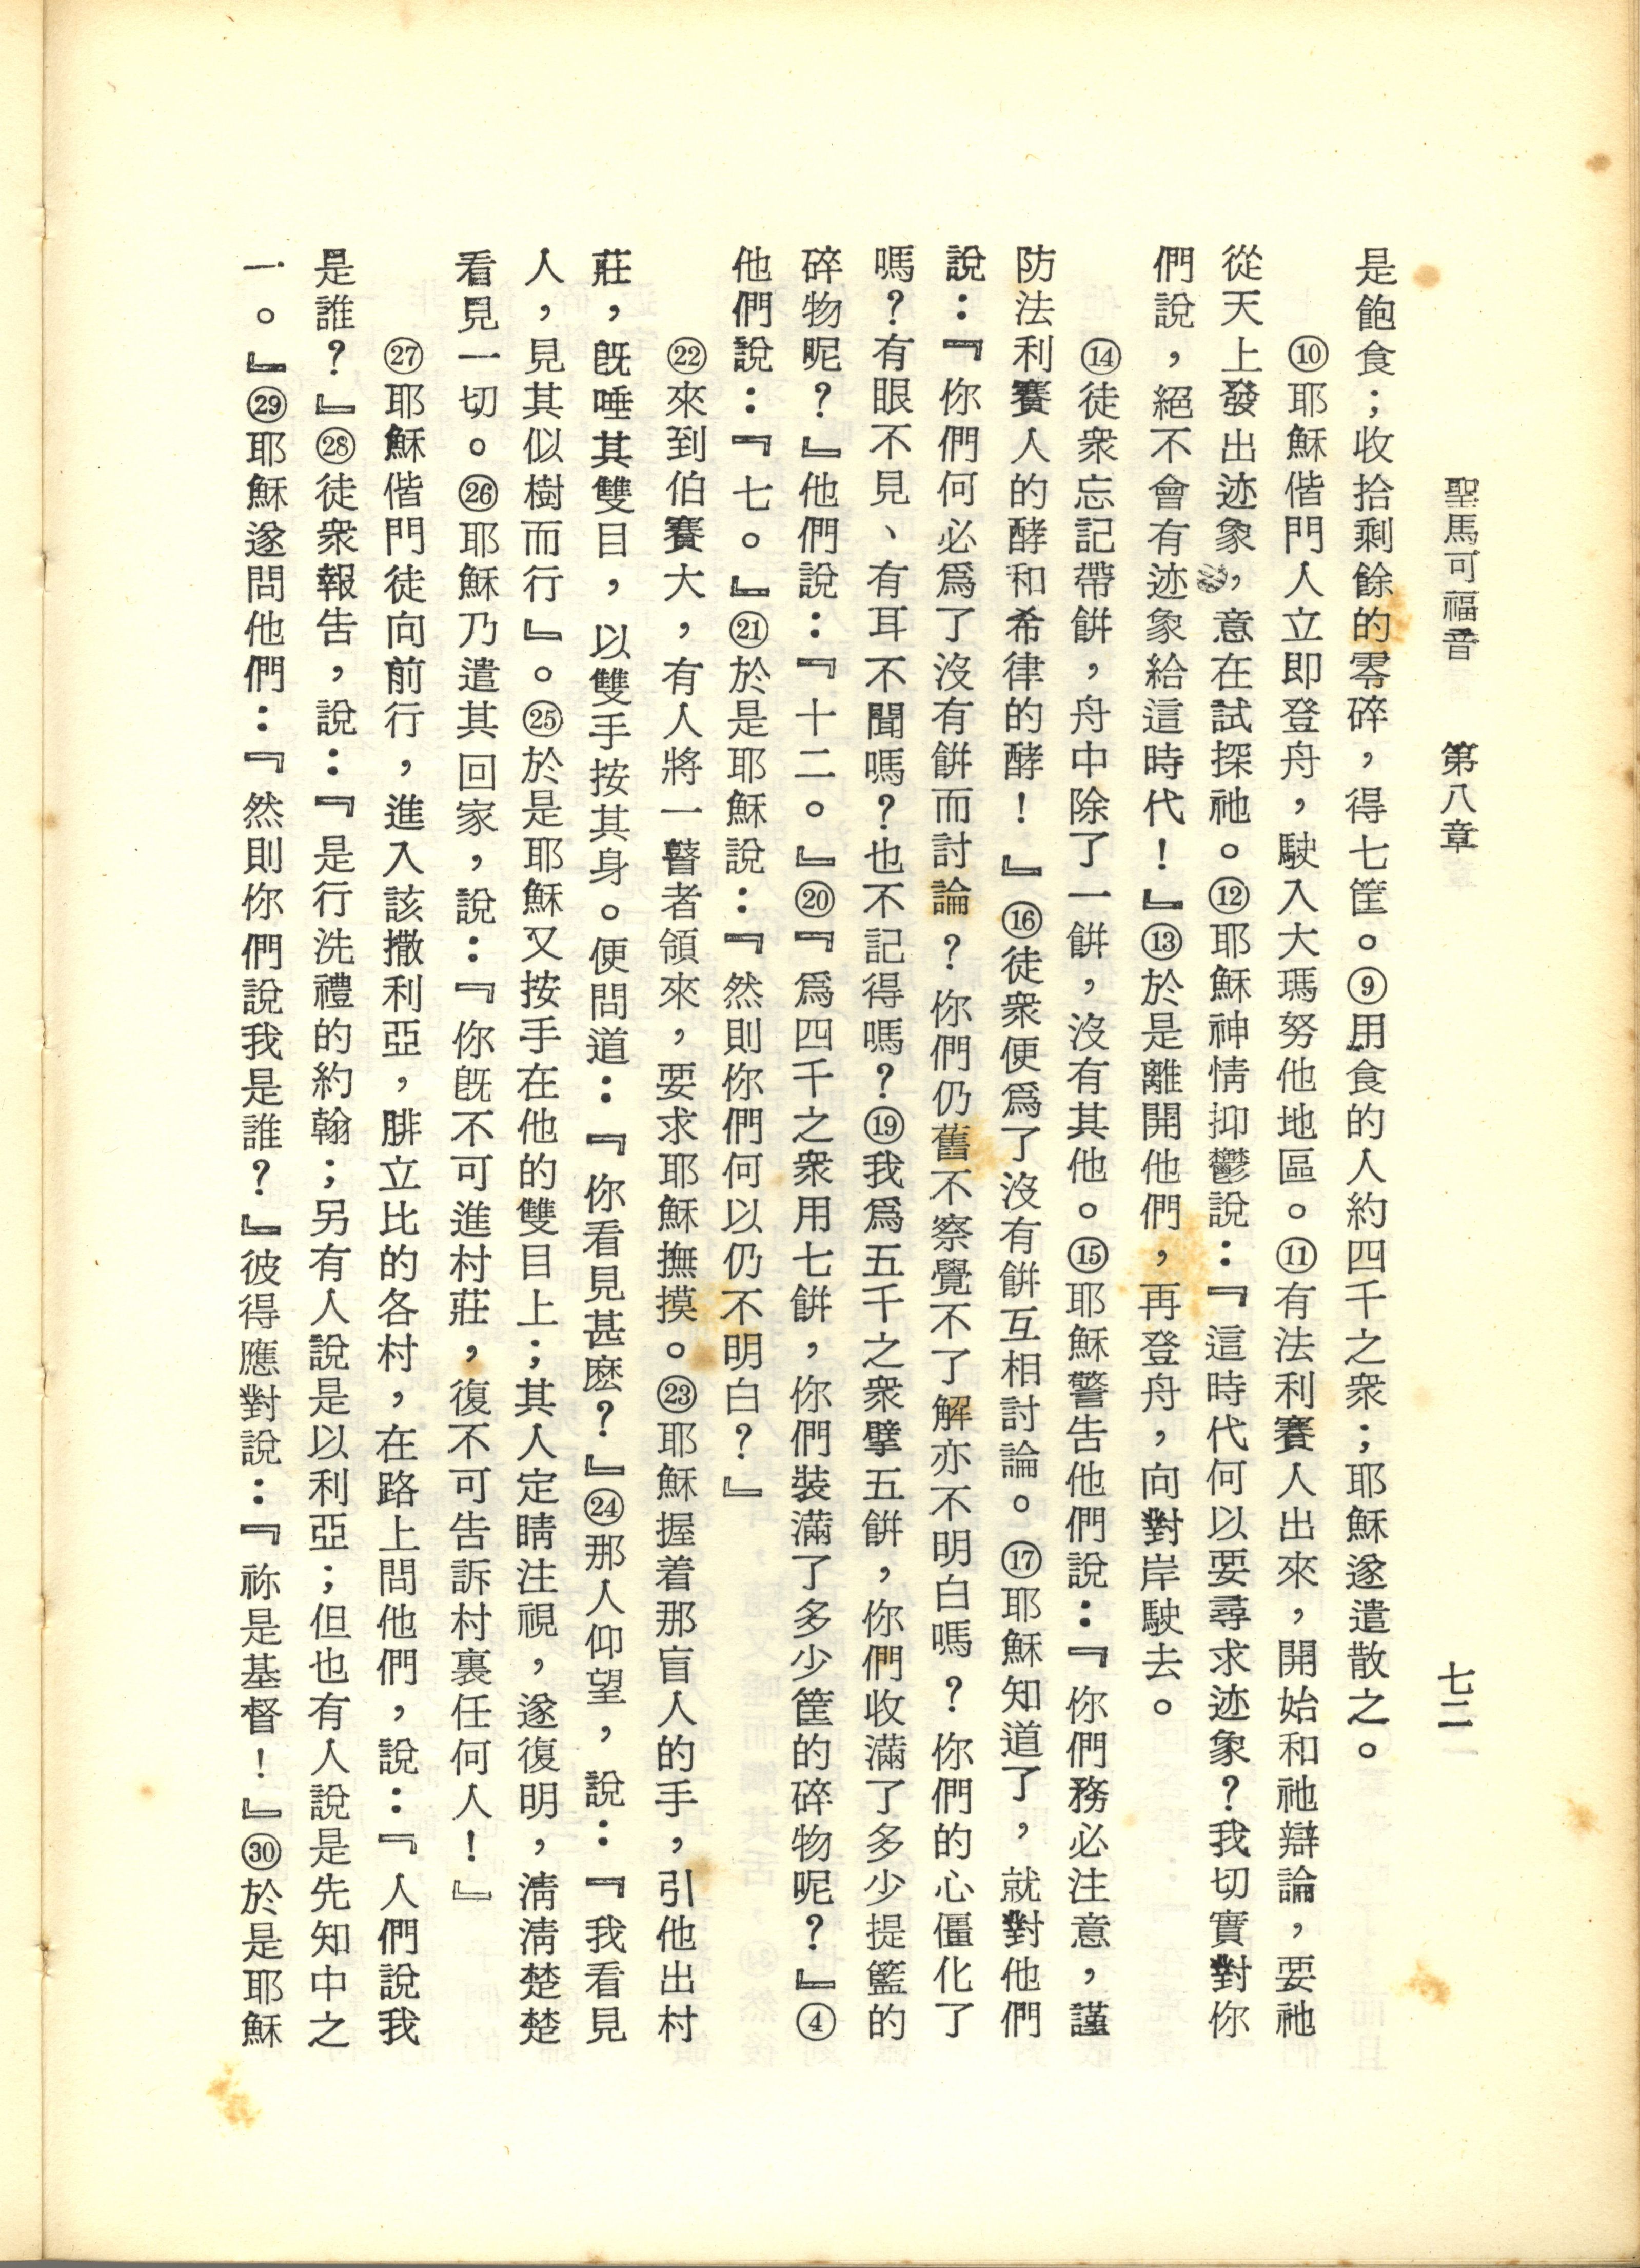 聖馬可福音　第八章　七二
是飽食；收拾剩餘的零碎，得七筐。⑨用食的人約四千之衆；耶穌遂遣散之。
⑩耶穌偕門人立即登舟，駛入大瑪努他地區。⑪有法利賽人出來，開始和祂辯論，要祂
從天上發出迹象，意在試探祂。⑫耶穌神情抑鬱說：『這時代何以要尋求迹象？我切實對你
們說，絕不會有迹象給這時代！』⑬於是離開他們，再登舟，向對岸駛去。
⑭徒衆忘記帶餅，舟中除了一餅，沒有其他。⑮耶穌警告他們說：『你們務必注意，謹
防法利賽人的酵和希律的酵！』⑯徒衆便爲了沒有餅互相討論。⑰耶穌知道了，就對他們
說：『你們何必爲了沒有餅而討論？你們仍舊不察覺不了解亦不明白嗎？你們的心僵化了
嗎？有眼不見、有耳不聞嗎？也不記得嗎？⑲我爲五千之衆擘五餅，你們收滿了多少提籃的
碎物呢？』他們說：『十二。』⑳『爲四千之衆用七餅，你們裝滿了多少筐的碎物呢？』④
他們說：『七。』㉑於是耶穌說：『然則你們何以仍不明白？』
㉒來到伯賽大，有人將一瞽者領來，要求耶穌撫摸。㉓耶穌握着那盲人的手，引他出村
莊，旣唾其雙目，以雙手按其身。便問道：『你看見甚麽？』㉔那人仰望，說：『我看見
人，見其似樹而行』。㉕於是耶穌又按手在他的雙目上；其人定睛注視，遂復明，淸淸楚楚
看見一切。㉖耶穌乃遣其回家，說：『你旣不可進村莊，復不可告訴村裏任何人！』
㉗耶穌偕門徒向前行，進入該撒利亞，腓立比的各村，在路上問他們，說：『人們說我
是誰？』㉘徒衆報告，說：『是行洗禮的約翰；另有人說是以利亞；但也有人說是先知中之
一。』㉙耶穌遂問他們：『然則你們說我是誰？』彼得應對說：『祢是基督！』㉚於是耶穌